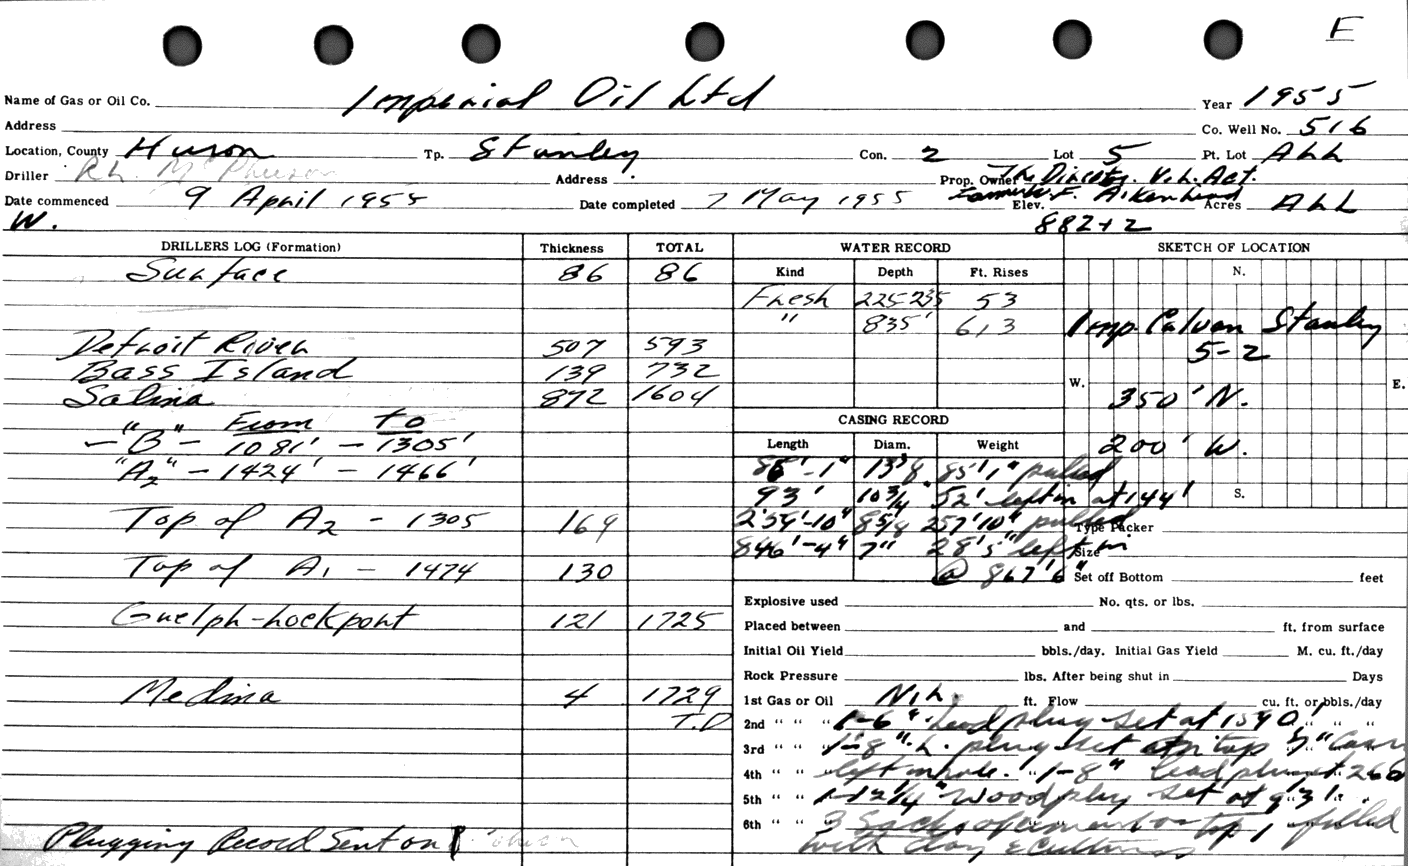 E
Name of Gas or Oil Co. Imperial Oil Ltd Year 1955
Address Co. Well No. 516
Location, County Huron Tp. Stanley Con. 2 Lot 5 Pt. Lot ALL
Driller Address Prop. Owner The Director. V. L. Act.
Date commenced 9 April 1955 Date completed 7 May 1955 Elev. F. Aikenhead Acres ALL
W. 882+2
DRILLERS LOG (Formation) Thickness TOTAL WATER RECORD SKETCH OF LOCATION
Surface 86 86 Kind Depth Ft. Rises N.
Fresh 225-235 53
" 835' 613 Imp Calvan Stanley
Detroit River 507 593 5-2
Bass Island 139 732 W. E.
Salina 872 1604 350' N.
" " From to CASING RECORD
- B - 1081' - 1305' Length Diam. Weight 200' W.
"A2" - 1424' - 1466' 13 3/8 85' 1" pulled
93' 10 3/4" 52' left in at 144' S.
Top of A2 - 1305 169 8 5/8 257' 10" pulled Type Packer
846'-4" 7" 28' 5" left in Size
Top of A1 - 1474 130 @ 867' 6" Set off Bottom feet
Explosive used No. qts. or lbs.
Guelph-Lockport 121 1725 Placed between and ft. from surface
Initial Oil Yield bbls./day. Initial Gas Yield M. cu. ft./day
Rock Pressure lbs. After being shut in Days
Medina 4 1729 1st Gas or Oil NiL. ft. Flow cu. ft. or bbls./day
T.D 2nd " " " 1-6" lead plug set at 1590' " " "
3rd " " 1-8" L. plug set at top 7"
4th " " left in hole. 1-8" lead plug at 260
5th " " 1-12 1/4" wood plug set at 93'.
6th " " 3 Sacks of cement on top filled
Plugging Record Sent on with clay & cuttings